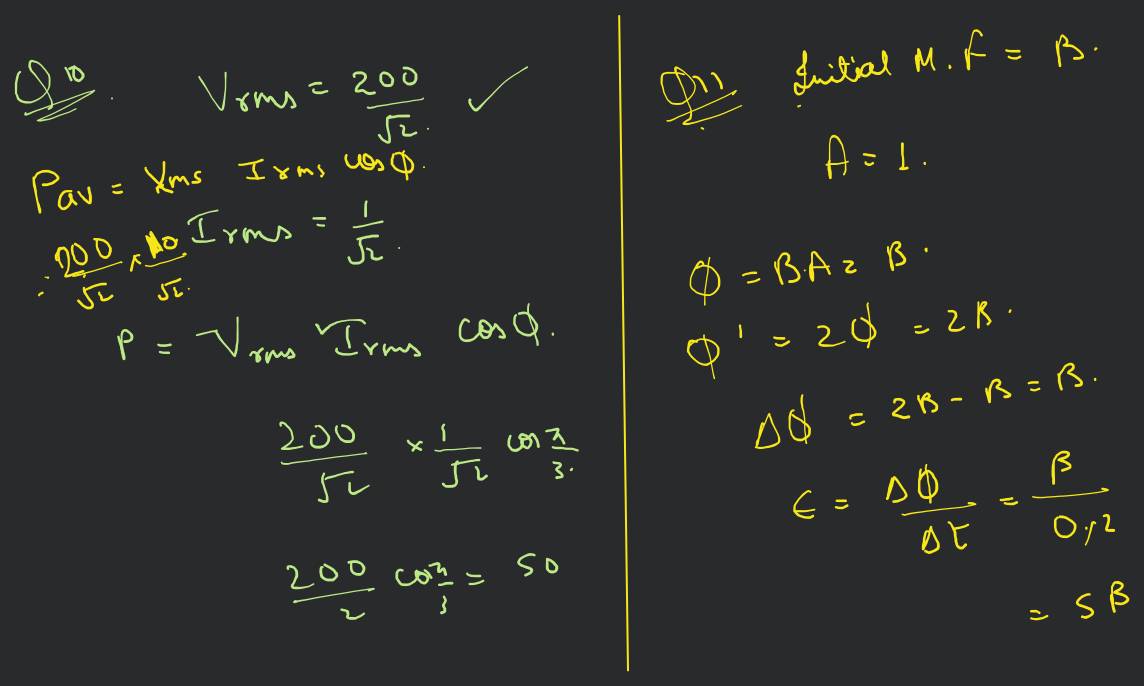 Q10. Vrms = 200/√2. ✓
Pav = Vrms Irms cosϕ.
= 200/√2 × 10/√2.
Irms = 1/√2.
P = Vrms Irms cosϕ.
200/√2 × 1/√2 cos π/3.
200/2 cos π/3 = 50
Q11. Initial M.F = B.
A = 1.
ϕ = B.A = B.
ϕ' = 2ϕ = 2B.
Δϕ = 2B - B = B.
ε = Δϕ/Δt = B/0.2
= 5B